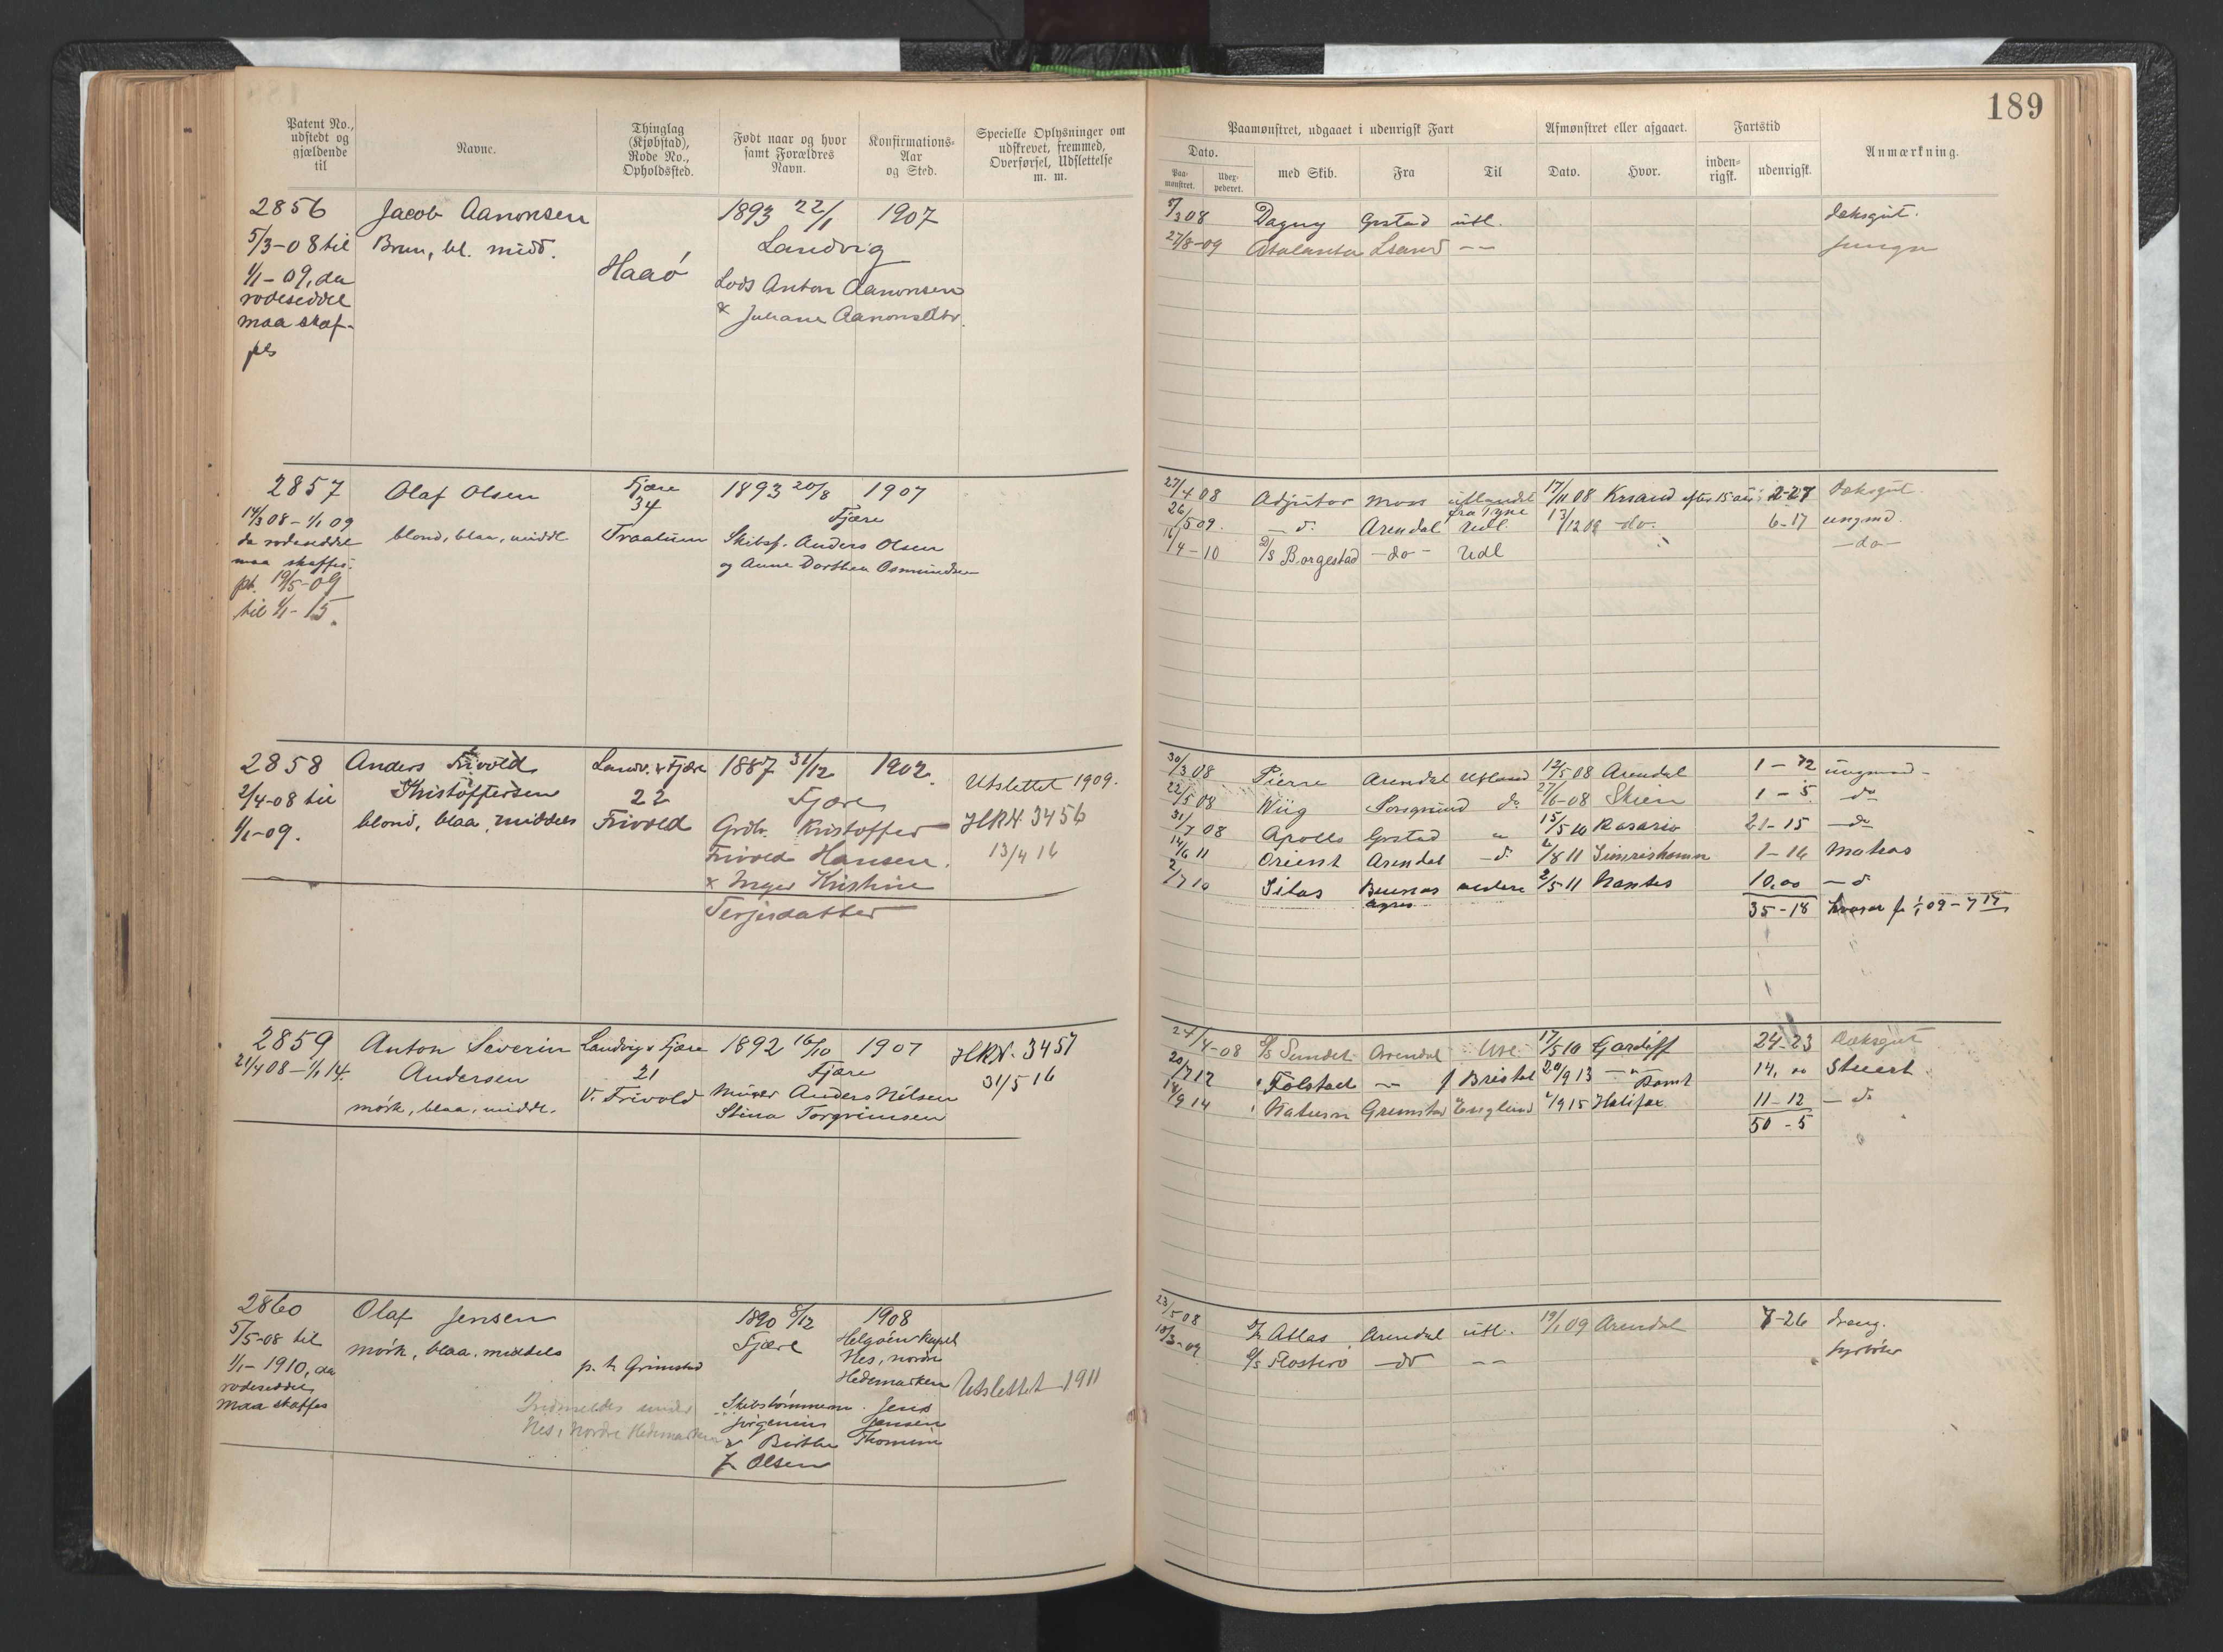 189
Patent No., udstedt og gjældende til
Navne.
Thinglag (Kjøbstad), Rode No., Opholdssted.
Født naar og hvor samt Forældres Navn.
Konfirmations-Aar og Sted.
Specielle Oplysninger om udskrevet, fremmed, Overførsel, Udslettelse m. m.
Paamønstret, udgaaet i udenrigsk Fart
Afmønstret eller afgaaet.
Fartstid
Anmærkning.
Dato.
Paa-mønstret.
Udex-pederet.
med Skib.
Fra
Til
Dato.
Hvor.
inden-rigsk.
udenrigsk.
2856
5/3-08 til
1/1-09, da
rodeseddel
maa skaf-
fes
Jacob Aanonsen
Brun, bl. midd.
Haaö
1893 22/1 1907
Landvig
Lods Anton Aanonsen
& Juliane Aanonsdtr.
5/3 08 Dagny Grstad utl. daksgut.
27/8-09 Atalanta Lsand — —
2857
14/3 08 - 1/1 09
da rodeseddel
maa skaffes.
pt. 19/5-09
til 1/1-15.
Olaf Olsen
blond, blaa, middl.
Fjære
34
Fraatuen
1893 20/8 1907
Fjære
Skibsf. Anders Olsen
og Anne Dorthea Osmundsen
27/4 08 Adjutor Moss utlandet 17/11 08 Krsand efter 15 aar: 2-27 Daksgut.
fra Tyne
26/5 09. — d. Arendal Udl. 13/12 09 do. 6-17 ungmd.
16/4-10 D/S Borgestad — do — Udl — do —
2858
2/4-08 til
1/1-09.
Anders Frivold
Kristoffersen
blond, blaa, middels
Landv. & Fjære
22
Frivold
1887 31/12 1902.
Fjære
Grdbr. Kristoffer
Frivold Hansen.
& Inger Kristine
Terjesdatter
Utslettet 1909.
HRN 3456
13/4 16
30/3 08 Pierre Arendal Utland 12/5 08 Arendal 1-12 ungmand
22/5 08 Wiig Porsgrund do 27/6-08 Skien 1-5 do
31/7 08 Apollo Grstad " 15/5 10 Rosario 21-15 — do
14/6 11 Orient Arendal — d. /8 11 Simrishamn 1-16 Matros
2/7 10 Silas Buenos videre 2/5 11 Nantes 10,00 — d
Ayres
35-18
2859
21/4 08 - 1/1 14.
Anton Severin
Andersen
mörk, blaa, middl.
Landvig & Fjære
21
V. Frivold
1892 16/10 1907
Fjære
Murer Anders Nilsen
Stina Torgrimsen
HRN. 3457
31/5 16
27/4-08 D/S Sundet Arendal Utl. 17/5 10 Cardiff 24-23 Daksgut
20/7 12 " Folstad — " — f Bristol 20/9 13 — " — 14,00 Stuert
14/9 14 " Naturn Grimstad England /9 15 Halifax 11-12 — d.
50-5
2860
5/5-08 til
1/1-1910, da
rodeseddel
maa skaffes
Olaf Jensen
mörk, blaa, middels
p. t. Grimstad
Indmeldes under
Nes, Nordre Hedemarken
1890 8/12
Fjære
1908
Helgøen Kapel
Nes, nordre
Hedemarken
Utslettet 1911
Skibstömmerm. Jens
Jörgenius Jensen
& Birthe Thomine
f. Olsen
23/5 08 D/S Atlas Arendal utl. 19/1 09 Arendal 7-26 dræng.
10/3-09 D/S Flosterö — do — — fyrböter